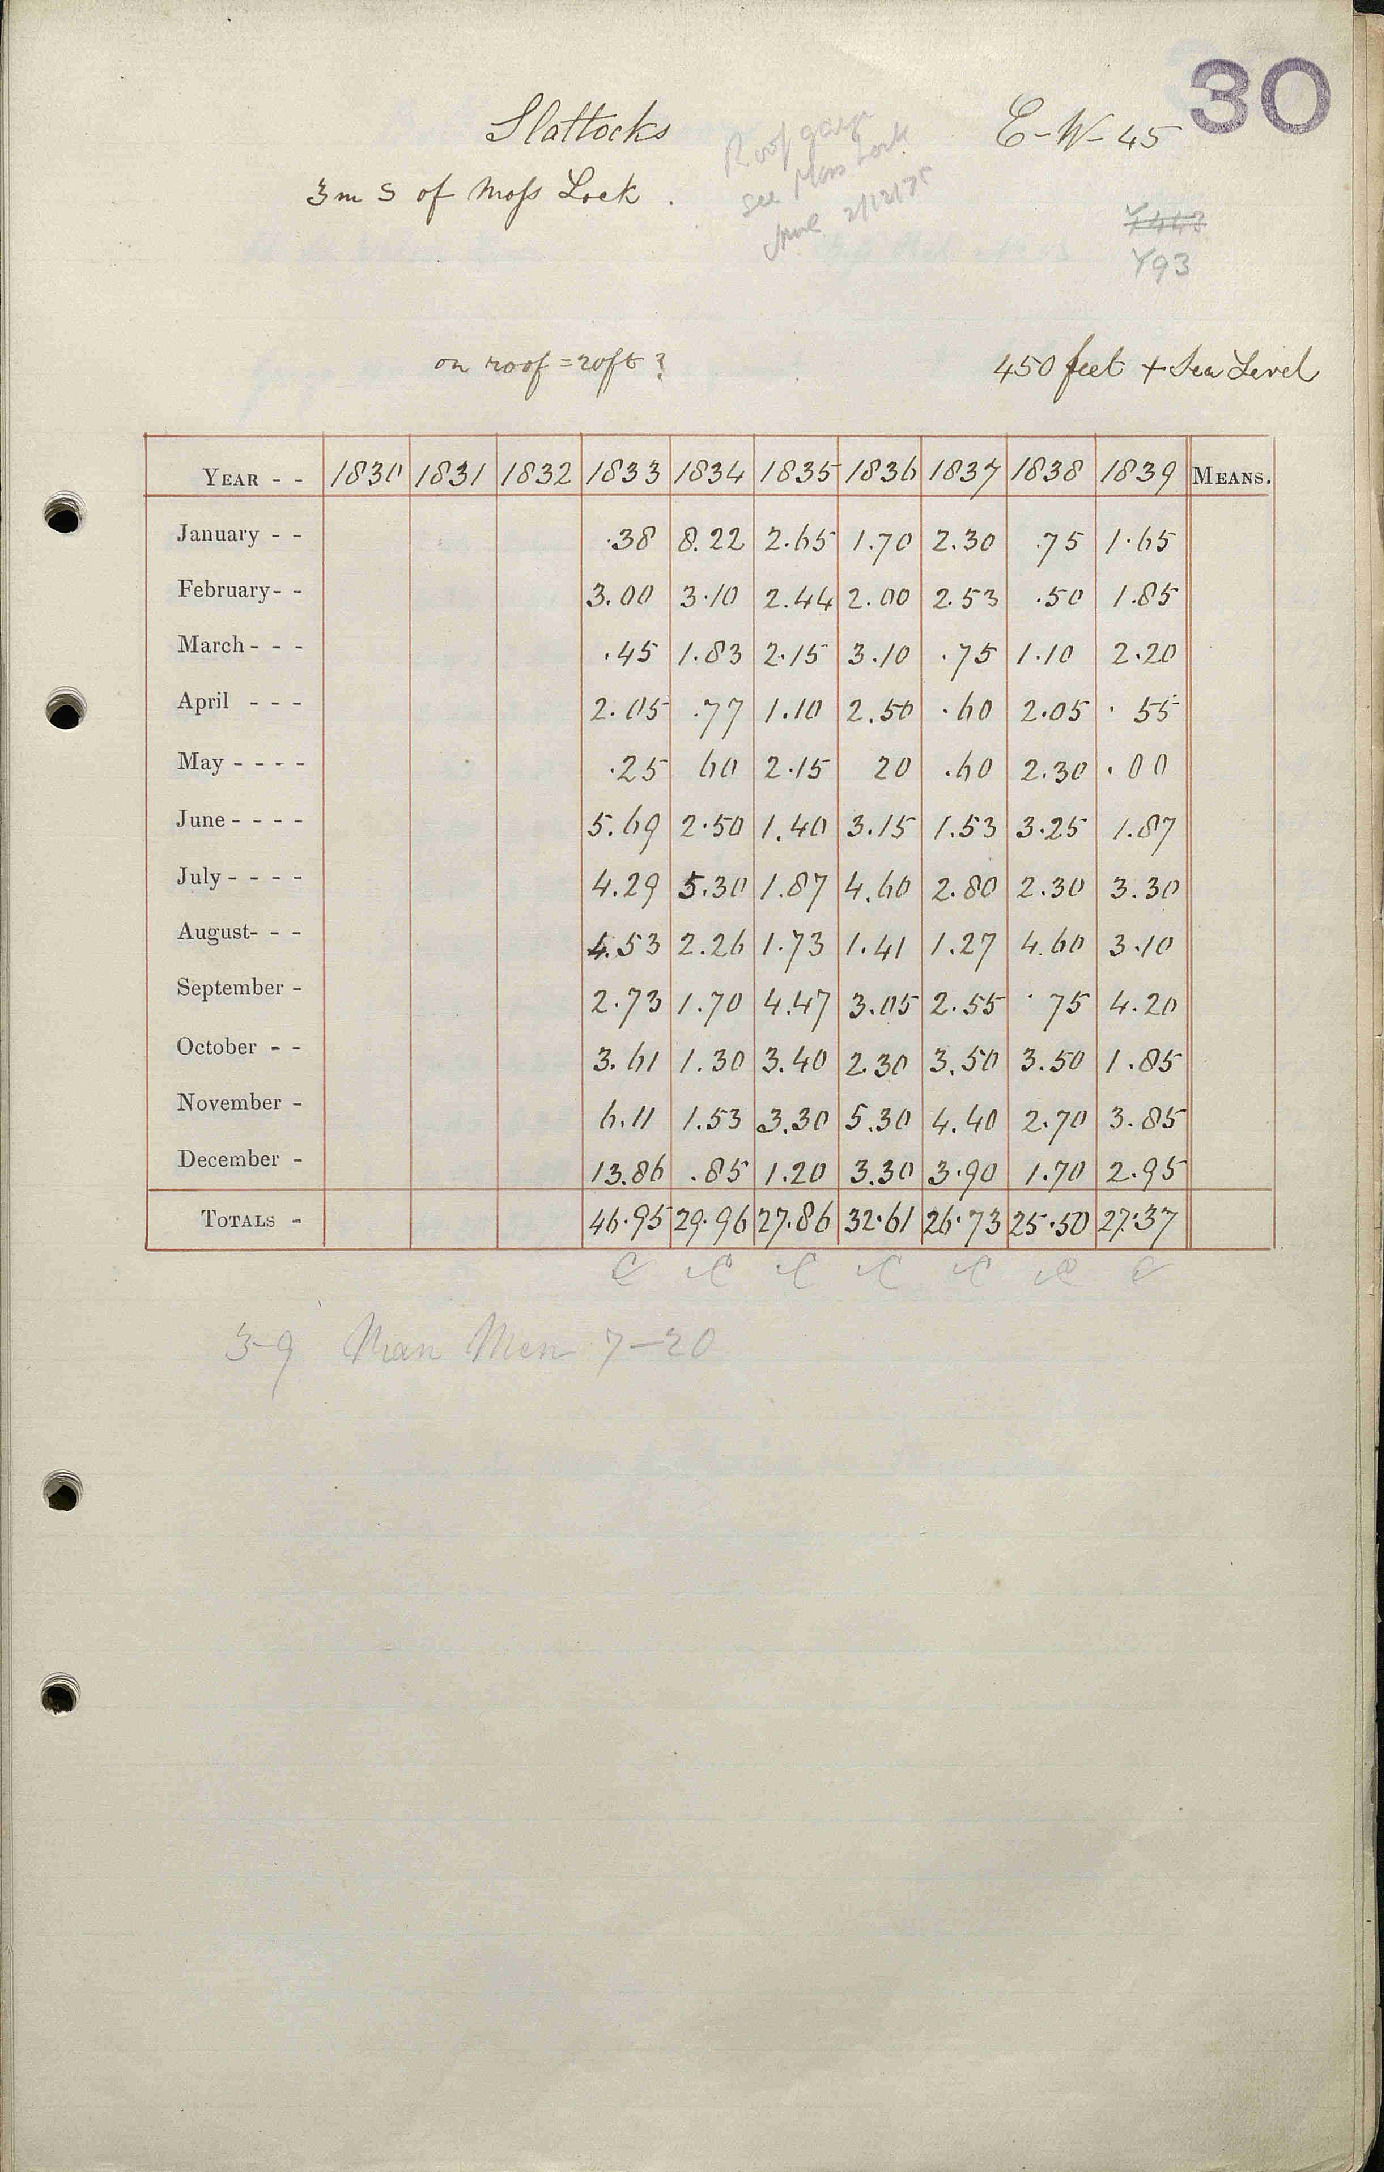 30
Slattocks
E-W-45
Roof gauge
see Moss Lock
2/12/75
3m S of Moss Lock.
Y443
Y93
on roof = 20ft?
450 feet + Sea Level
YEAR - - 1830 1831 1832 1833 1834 1835 1836 1837 1838 1839 MEANS.
January - - .38 8.22 2.65 1.70 2.30 .75 1.65
February - - 3.00 3.10 2.44 2.00 2.53 .50 1.85
March - - - .45 1.83 2.15 3.10 .75 1.10 2.20
April - - - 2.05 .77 1.10 2.50 .60 2.05 .55
May - - - - .25 60 2.15 20 .60 2.30 .00
June - - - - 5.69 2.50 1.40 3.15 1.53 3.25 1.87
July - - - - 4.29 5.30 1.87 4.60 2.80 2.30 3.30
August- - - 4.53 2.26 1.73 1.41 1.27 4.60 3.10
September - 2.73 1.70 4.47 3.05 2.55 .75 4.20
October - - 3.61 1.30 3.40 2.30 3.50 3.50 1.85
November - 6.11 1.53 3.30 5.30 4.40 2.70 3.85
December - 13.86 .85 1.20 3.30 3.90 1.70 2.95
TOTALS - 46.95 29.96 27.86 32.61 26.73 25.50 27.37
3-9 Man Mem 7-20